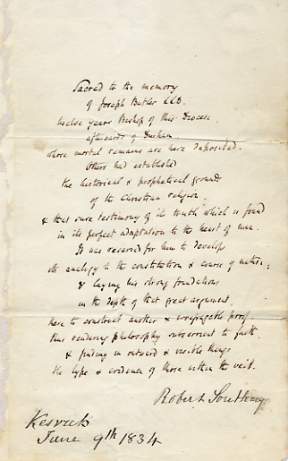 Sacred to the memory
of Joseph Butler LLD.
twelve years Bishop of this Diocese
afterwards of Durham
whose mortal remains are here deposited.
Others had established
the historical & prophetical ground
of the Christian religion
& that sure testimony of its truth which is found
in its perfect adaptation to the heart of man.
It was reserved for him to develope
its analogy to the constitution & course of nature:
& laying his strong foundations
in the depth of that great argument,
here to construct another & irrefragable proof,
thus rendering philosophy subservient to faith,
& finding in outward & visible things
the type & evidence of those within the veil.
Robert Southey
Keswick
June 9th 1834